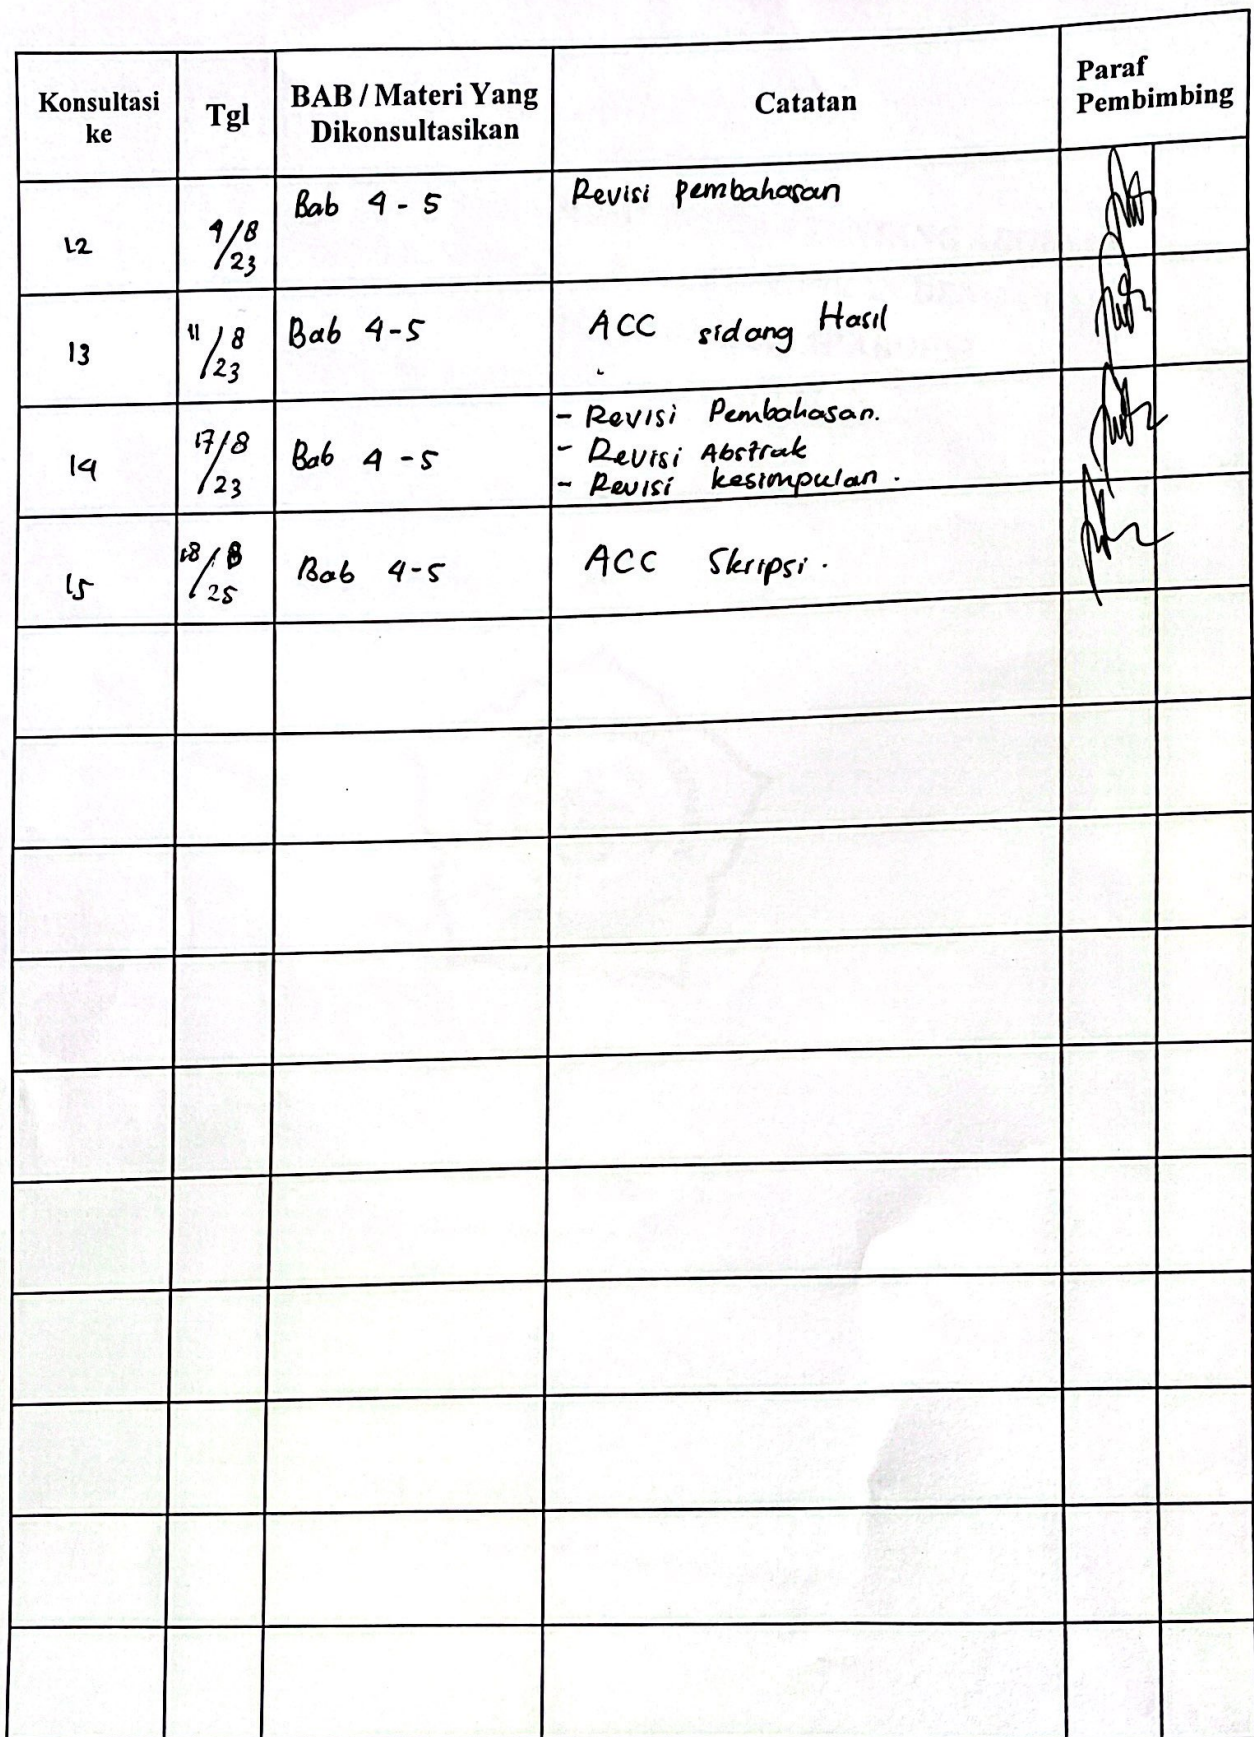 Konsultasi ke
Tgl
BAB / Materi Yang Dikonsultasikan
Catatan
Paraf Pembimbing
12
9/8
/23
Bab 4 - 5
Revisi pembahasan
13
11/8
/23
Bab 4-5
ACC sidang Hasil
14
17/8
/23
Bab 4 - 5
- Revisi Pembahasan.
- Revisi Abstrak
- Revisi kesimpulan.
15
18/8
/25
Bab 4-5
ACC Skripsi.